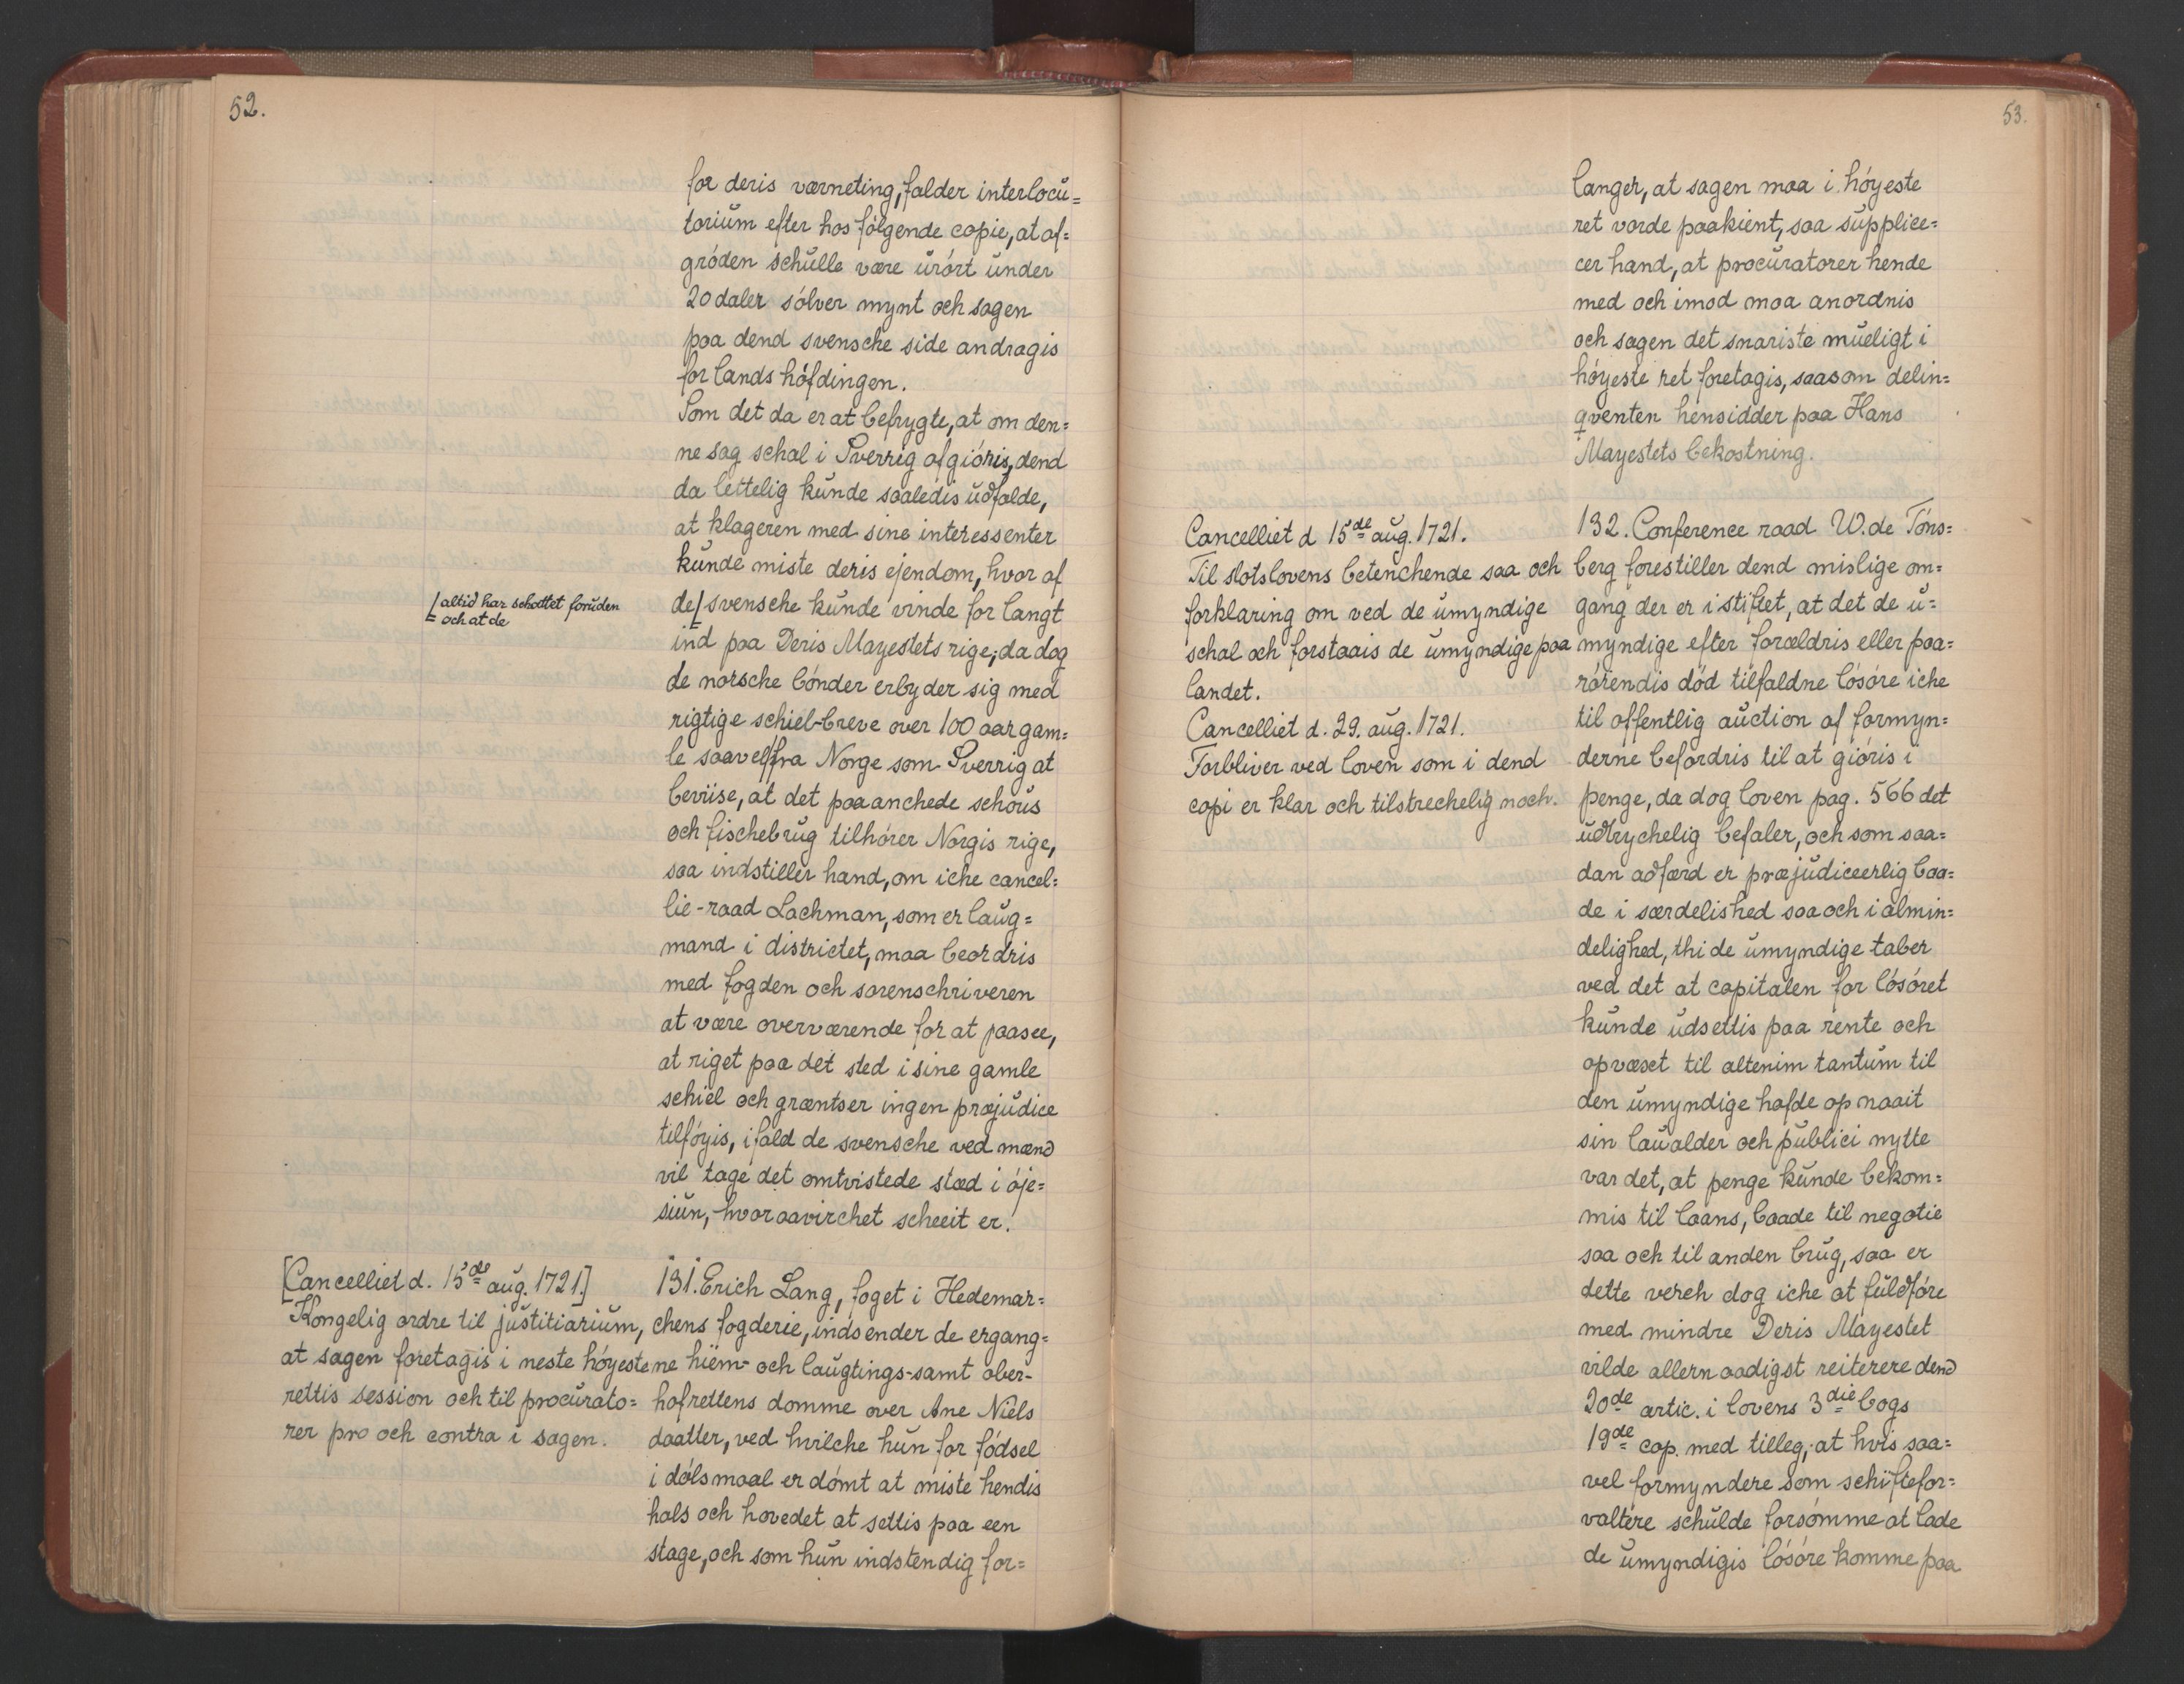 52.
for deris værneting, falder interlocu=
torium efter hos følgende copie, at af=
grøden schulle være urørt under
20 daler sølver mynt och sagen
paa dend svensche side andragis
for lands høfdingen.
Som det da er at befrygte, at om den=
ne sag schal i Sverrig afgiøris, dend
da lettelig kunde saaledis udfalde,
at klageren med sine interessenter
kunde miste deris ejendom, hvor af
[altid har schottet foruden
och at de
de [svensche kunde vinde for langt
ind paa Deris Mayestets rige, da dog
de norsche bønder erbyder sig med
rigtige schiel-breve over 100 aar gam=
le saavel fra Norge som Sverrig at
beviise, at det paaanchede schous
och fischebrug tilhører Norgis rige,
saa indstiller hand, om iche cancel=
lie-raad Lachman, som er laug=
mand i districtet, maa beordris
med fogden och sorenschriveren
at være overværende for at paasee,
at riget paa det sted i sine gamle
schiel och græntser ingen præjudice
tilføyis, ifald de svensche ved mænd
vil tage det omtvistede stæd i øje=
siun, hvor aavirchet scheeit er.
[Cancelliet d. 15de aug. 1721.]
Kongelig ordre til justitiarium,
at sagen foretagis i neste høyeste
rettis session och til procurato=
rer pro och contra i sagen.
131. Erich Lang, foget i Hedemar=
chens fogderie, indsender de ergang=
ne hiem- och laugtings- samt ober-
hofrettens domme over Ane Niels
daatter, ved hvilche hun for fødsel
i dølsmaal er dømt at miste hendis
hals och hovedet at settis paa een
stage, och som hun indstendig for=
53.
langer, at sagen maa i høyeste
ret vorde paakient, saa supplice=
cer hand, at procuratorer hende
med och imod maa anordnis
och sagen det snariste mueligt i
høyeste ret foretagis, saasom delin=
qventen hensidder paa Hans
Mayestets bekostning.
Cancelliet d 15de aug. 1721.
Til slotslovens betenchende saa och
forklaring om ved de umyndige
schal och forstaais de umyndige paa
landet.
Cancelliet d. 29. aug. 1721.
Forbliver ved loven som i dend
copi er klar och tilstrechelig noch.
132. Conference raad W. de Tøns=
berg forestiller dend mislige om=
gang der er i stiftet, at det de u=
myndige efter forældris eller paa=
rørendis død tilfaldne løsøre iche
til offentlig auction af formyn=
derne befordris til at giøris i
penge, da dog loven pag. 566 det
udtrychelig befaler, och som saa=
dan adfærd er præjudiceerlig baa=
de i særdelished saa och i almin=
delighed, thi de umyndige taber
ved det at capitalen for løsøret
kunde udsettis paa rente och
opvæxet til alterum tantum til
den umyndige hafde opnaait
sin laualder och publici nytte
var det, at penge kunde bekom=
mis til laans, baade til negotie
saa och til anden brug, saa er
dette verch dog iche at fuldføre
med mindre Deris Mayestet
vilde allernaadigst reiterere dend
20de artic. i lovens 3die bogs
19de cap. med tilleg, at hvis saa=
vel formyndere som schiftefor=
valtere schulde forsømme at lade
de umyndigis løsøre komme paa